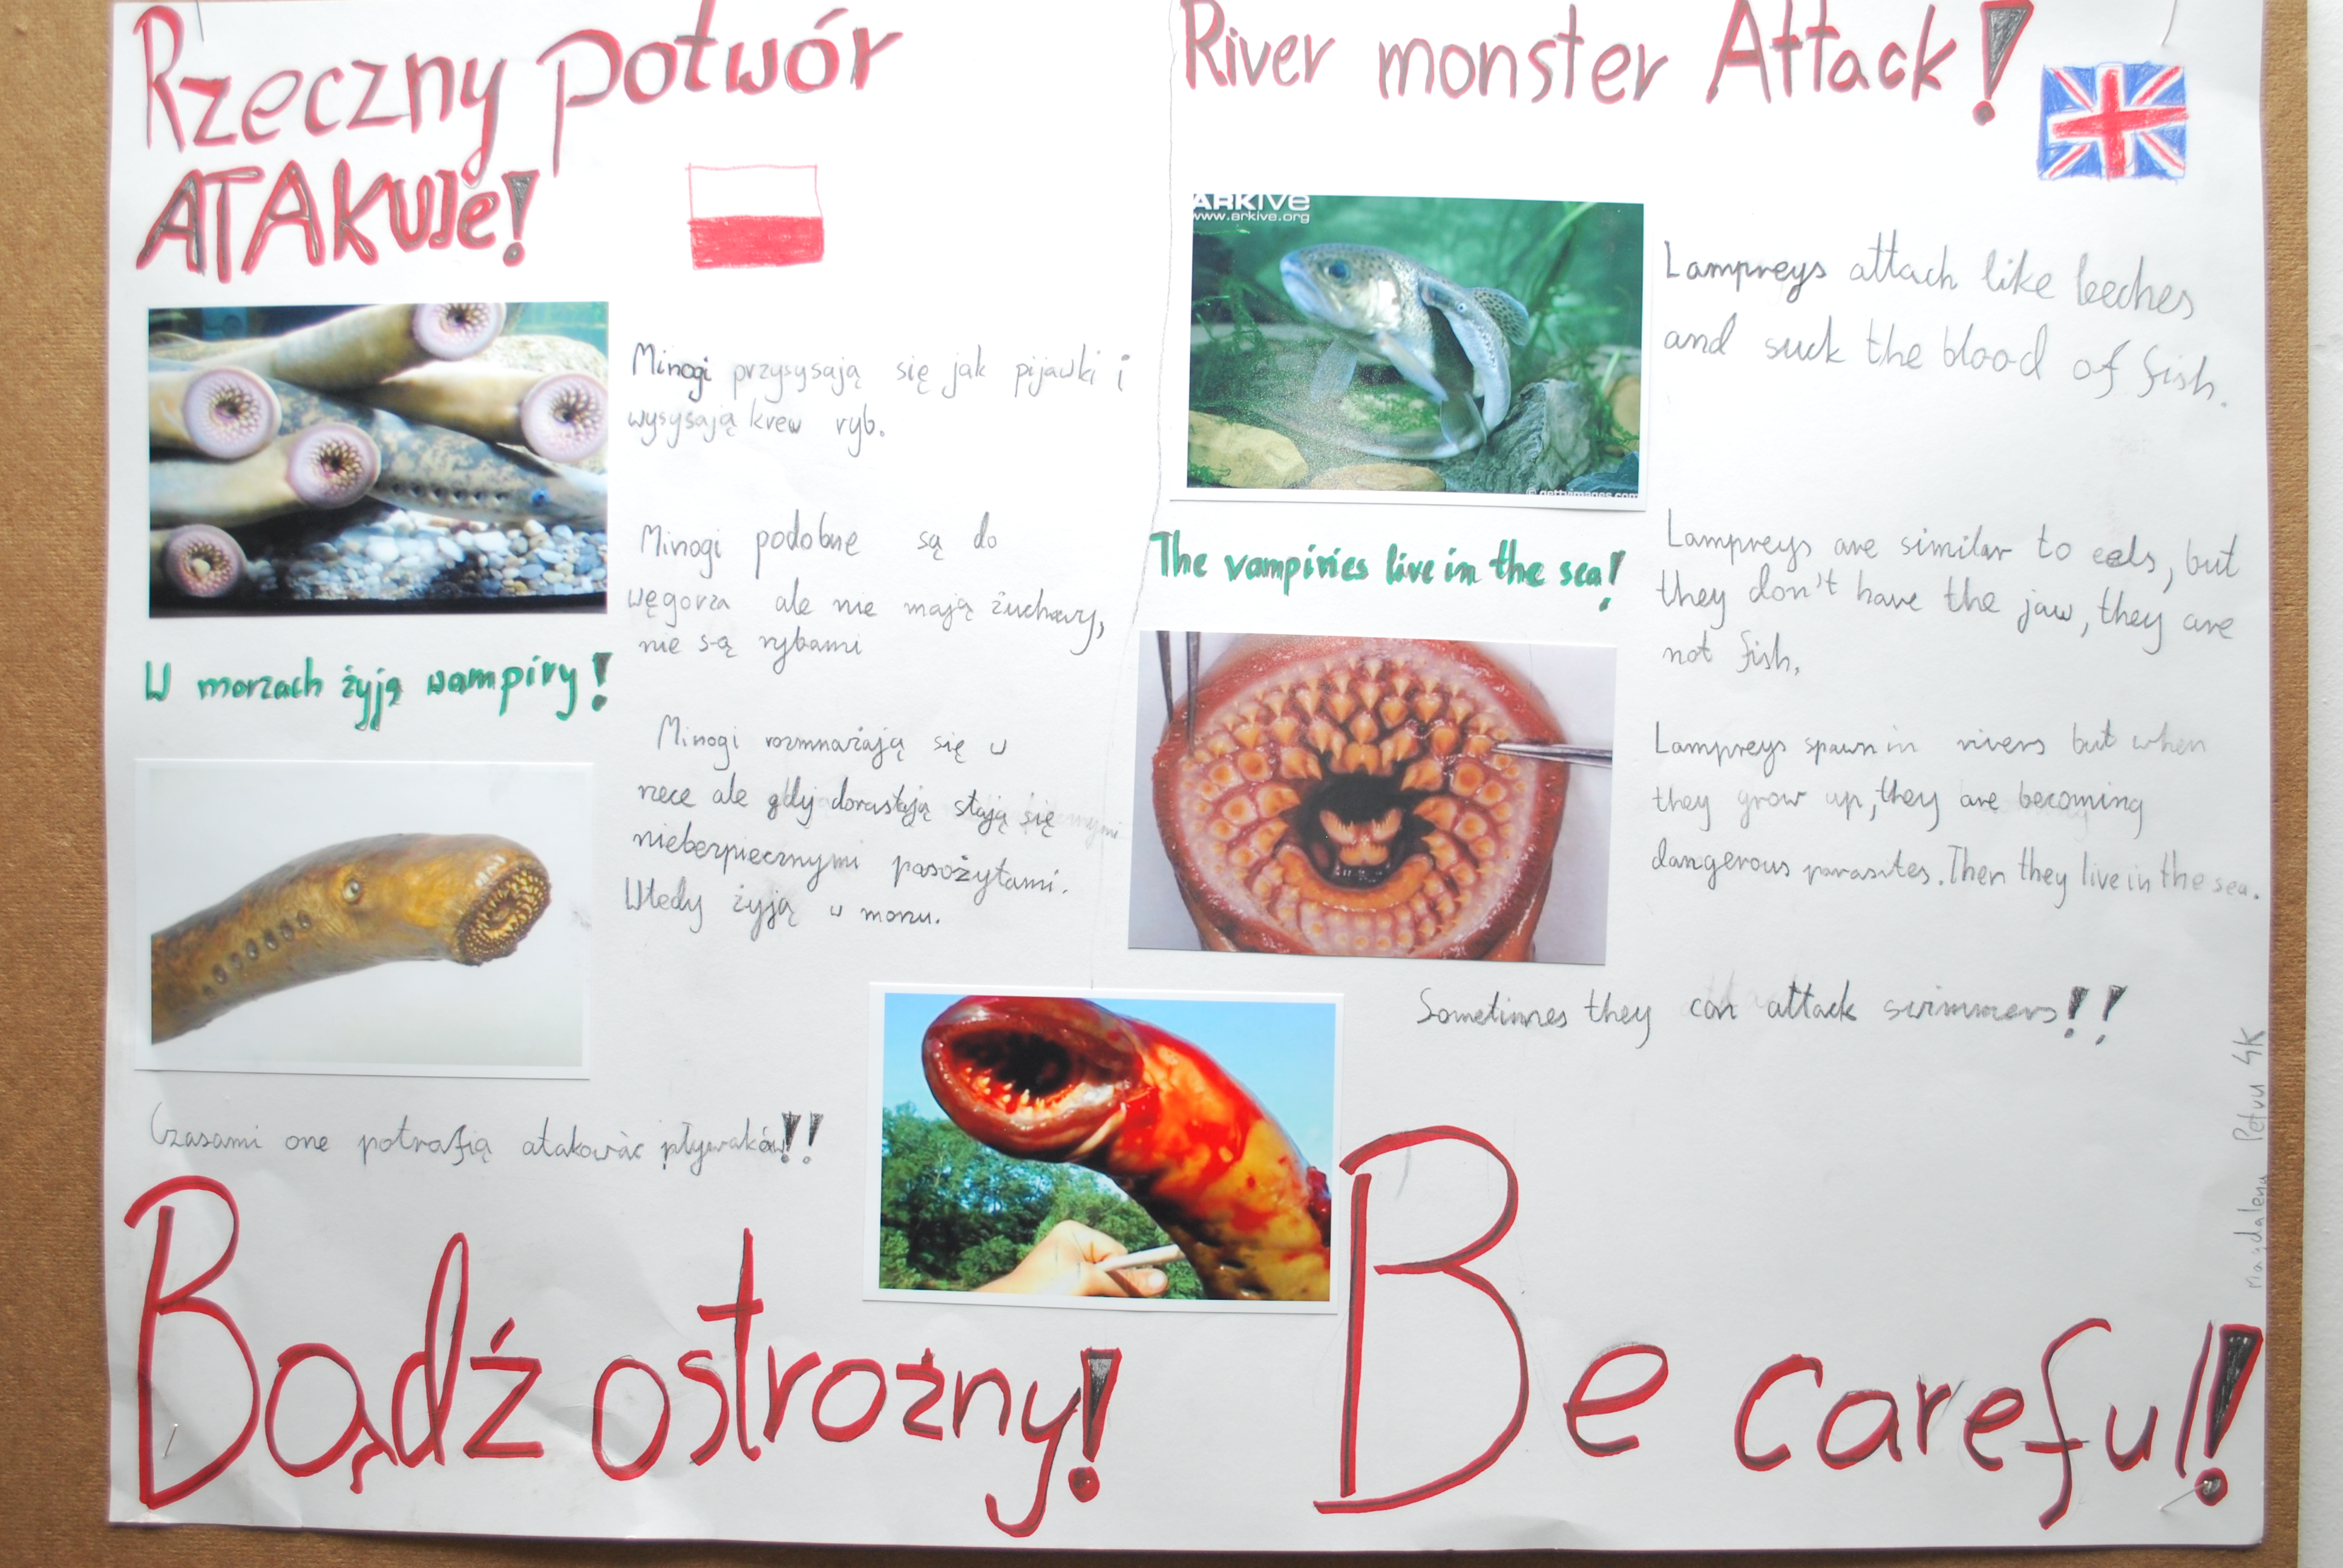 Rzeczny potwór
ATAKUJe!
Minogi przysysają się jak pijawki i
wysysają krew ryb.
Minogi podobne są do
węgorza ale nie mają żuchwy,
nie są rybami
W morzach żyją wampiry!
Minogi rozmnażają się w
rzece ale gdy dorastają stają się
niebezpiecznymi pasożytami.
Wtedy żyją w morzu.
Czasami one potrafią atakować pływaków!!
Bądź ostrożny!
River monster Attack!
ARKIVE
www.arkive.org
© gettyimages.com
Lampreys attach like leeches
and suck the blood of fish.
The vampiries live in the sea!
Lampreys are similar to eels, but
they don't have the jaw, they are
not fish.
Lampreys spawn in rivers but when
they grow up, they are becoming
dangerous parasites. Then they live in the sea.
Sometimes they can attack swimmers!!
Be careful!
Magdalena Petru 4K